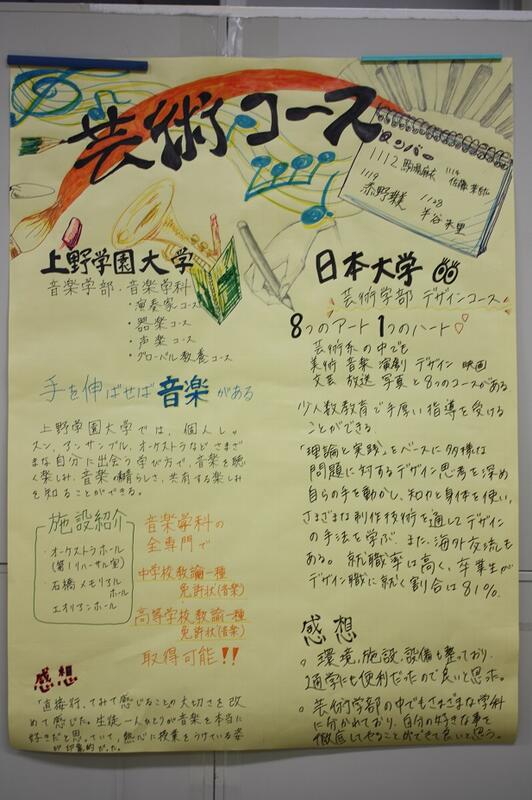 芸術コース
メンバー
1112
1114
1119
1108
上野学園大学
音楽学部・音楽学科
・演奏家コース
・器楽コース
・声楽コース
・グローバル教養コース
手を伸ばせば音楽がある
上野学園大学では、個人レッ
スン、アンサンブル、オーケストラなど さまざ
まな自分に出会う学び方で、音楽を聴
く楽しみ、音楽の素晴らしさ、共有する楽しみ
を知ることができる。
施設紹介
・オーケストラホール
(第1リハーサル室)
・石橋メモリアル
ホール
・エオリアンホール
音楽学科の
全専門で
中学校教諭一種
免許状(音楽)
高等学校教諭一種
免許状(音楽)
取得可能!!
感想
「直接行ってみて感じることの大切さを改
めて感じた。生徒一人ひとりが音楽を本当に
好きだと思っていて、熱心に授業をうけている姿
が印象的だった。
日本大学
芸術学部 デザインコース
8つのアート 1つのハート♡
芸術系の中でも
美術 音楽 演劇 デザイン 映画
文芸 放送 写真 と8つのコースがある
少人数教育で手厚い指導を受ける
ことができる。
「理論と実践」をベースに多様な
問題に対するデザイン思考を深め
自らの手を動かし、知力と身体を使い、
さまざまな制作技術を通してデザイン
の手法を学ぶ。また、海外交流も
ある。就職率は高く、卒業生が
デザイン職に就く割合は81%。
感想
○ 環境、施設、設備も整っており、
通学にも便利だったので良いと思った。
○ 芸術学部の中でもさまざまな学科
に分かれており、自分の好きな事を
徹底してやることができて良いと思う。